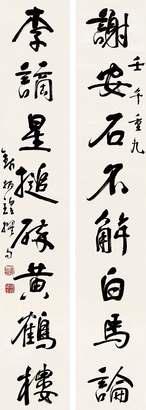 謝安石不解白馬論
壬午重九
李謫星搥碎黃鶴樓
錢振鍠撰句